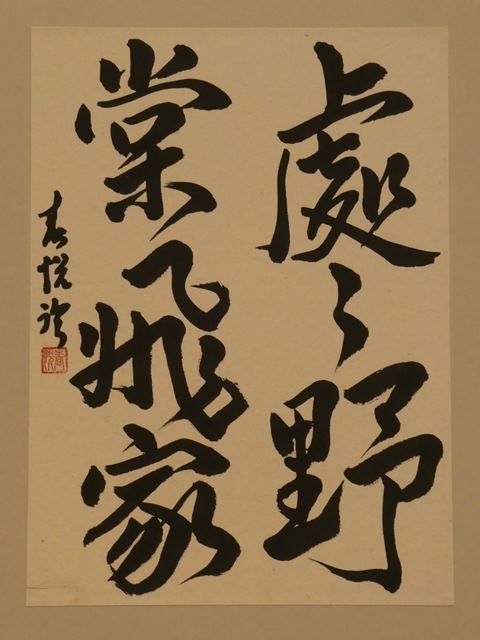 處々野
棠飛家
春悦